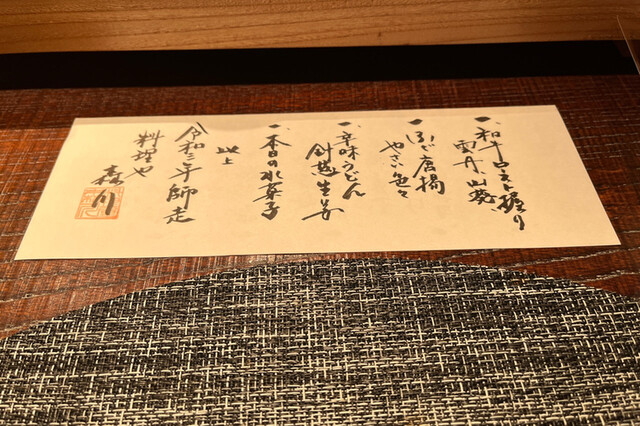 一、和牛ロースト握り
雲丹、山葵
一、ふぐ唐揚
やさい色々
一、辛味うどん
針葱生姜
一、本日の水菓子
以上
令和三年師走
料理や
森川